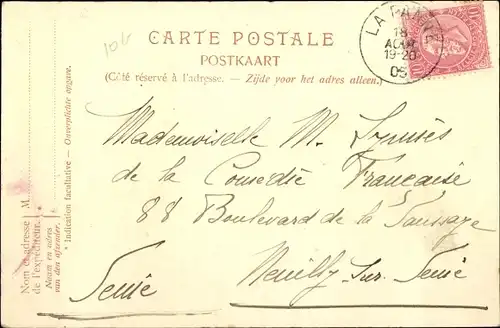 10b
CARTE POSTALE
POSTKAART
(Côté réservé à l'adresse. - Zijde voor het adres alleen.)
LA PANNE
18
AOUT
19-20
05
10
10
Mademoiselle M.
de la Comédie Française
88 Boulevard de la Saussaye
Neuilly sur Seine
Seine
Nom et adresse de l'expéditeur. M.
Naam en adres van den afzender.
* Indication facultative — Onverplichte opgave.